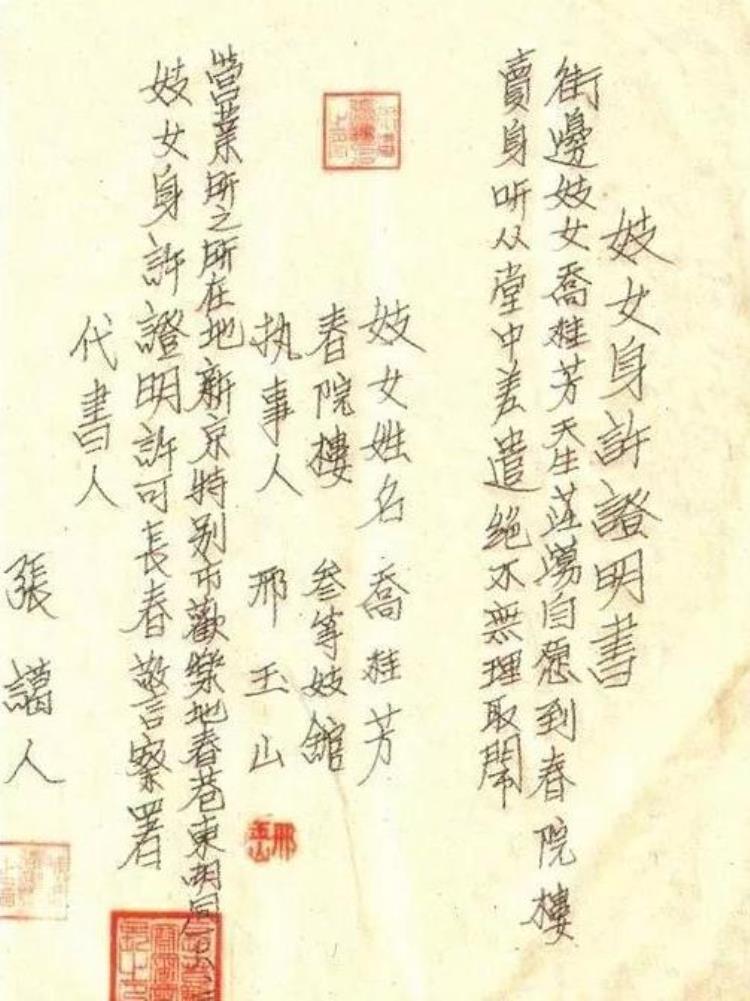 妓女身許證明書
街邊妓女喬桂芳天生莊蕩自愿到春院樓
賣身听从堂中差遣絕不無理取鬧
妓女姓名 喬桂芳
春院樓 叁等妓舘
执事人 邢玉山
邢玉山
營業所之所在地新京特别市歡樂地春巷東胡同
妓女身許證明許可長春警察署
代書人
張 人